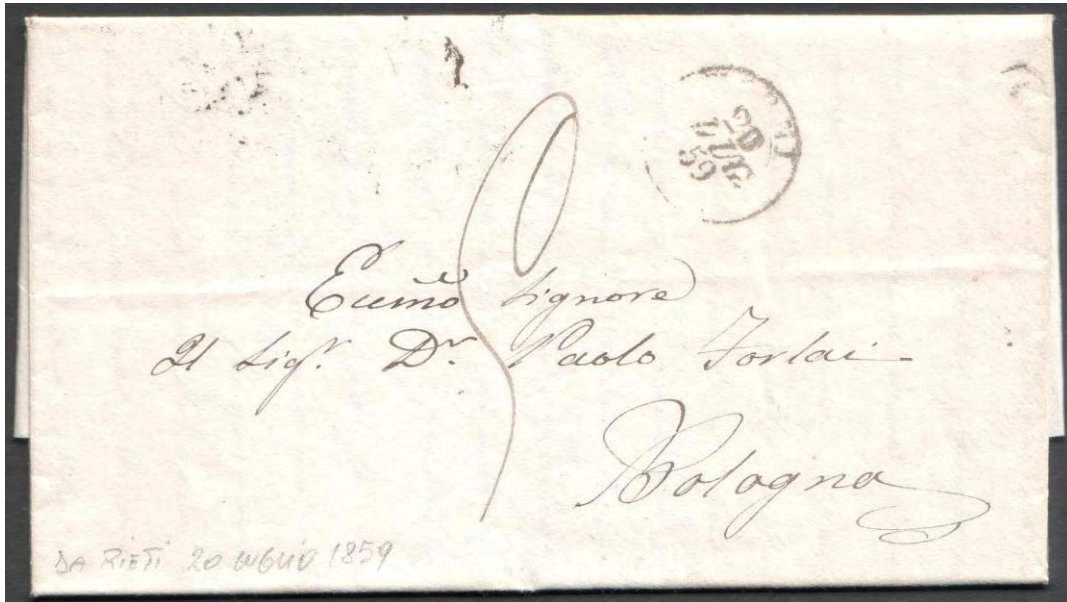 20
LUG
59
Eccmo Signore
Il Sigr. Dr. Paolo Forlai
Bologna
DA RIETI 20 LUGLIO 1859